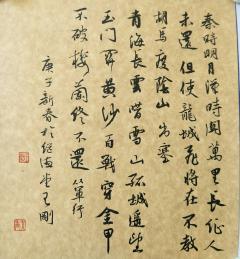 秦時明月漢時關萬里長征人
未還但使龍城飛將在不教
胡馬度陰山出塞
青海長雲暗雪山孤城遙望
玉門關黃沙百戰穿金甲
不破樓蘭終不還從軍行
庚子新春於海堂王剛